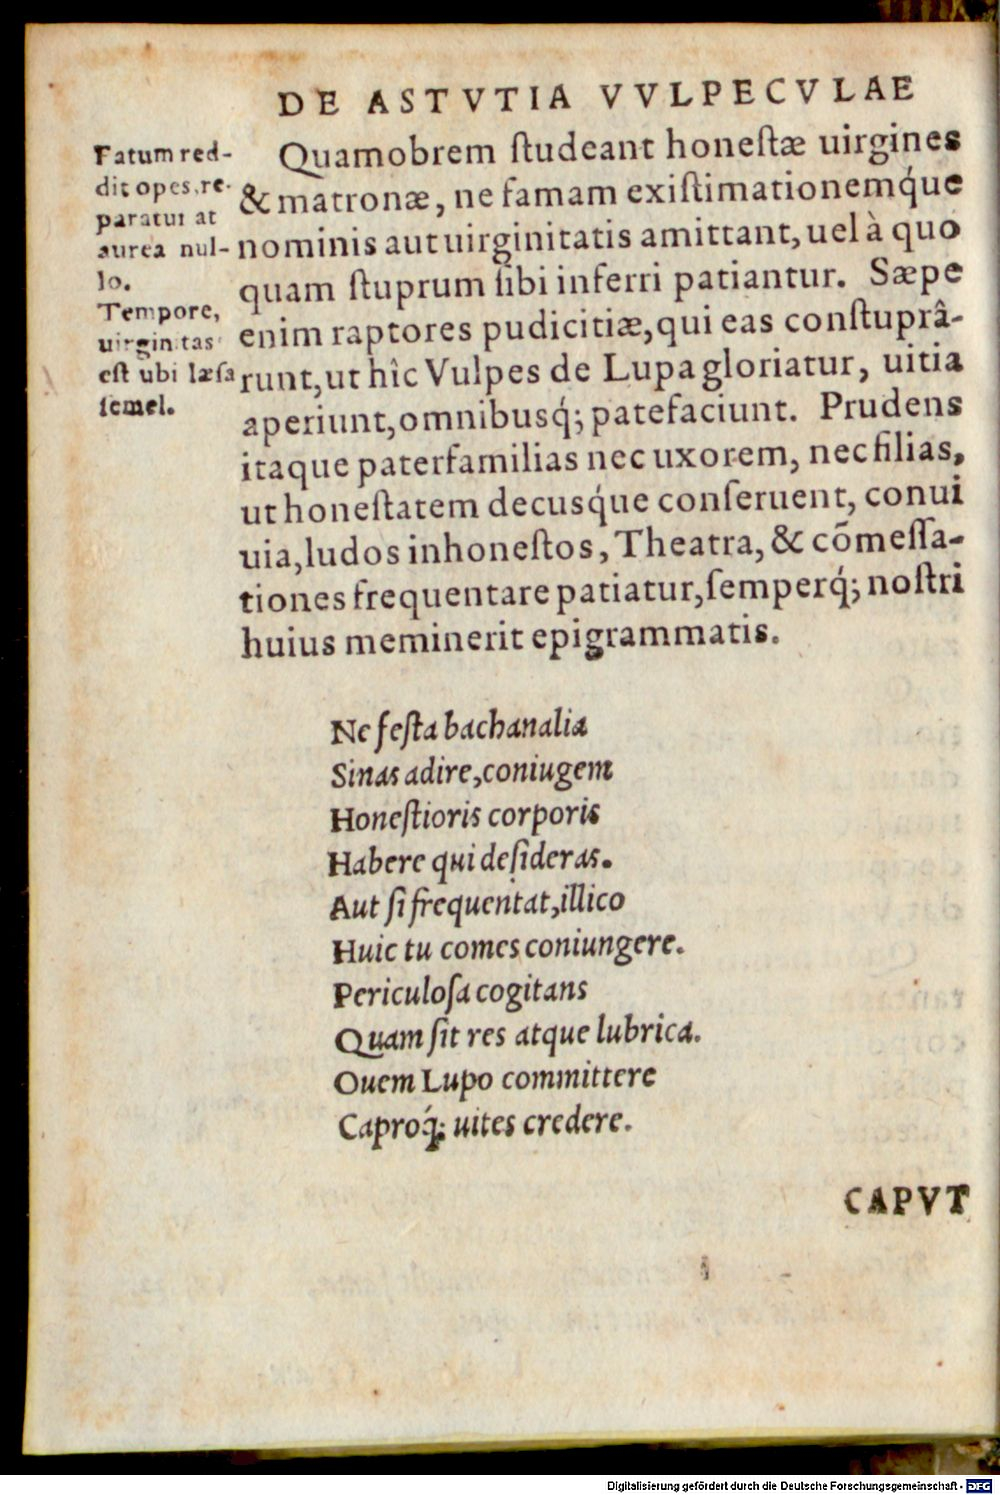 DE ASTVTIA VVLPECVLAE
Fatum red-
dit opes, re-
paratur at
aurea nul-
lo.
Tempore,
uirginitas
est ubi læsa
semel.
Quamobrem ſtudeant honeſtæ uirgines
& matronæ, ne famam exiſtimationemq́ue
nominis aut uirginitatis amittant, uel à quo
quam ſtuprum ſibi inferri patiantur. Sæpe
enim raptores pudicitiæ, qui eas conſtuprâ-
runt, ut hîc Vulpes de Lupa gloriatur, uitia
aperiunt, omnibusq́; patefaciunt. Prudens
itaque paterfamilias nec uxorem, nec filias,
ut honeſtatem decusq́ue conſeruent, conui
uia, ludos inhoneſtos, Theatra, & cõmeſſa-
tiones frequentare patiatur, ſemperq́; noſtri
huius meminerit epigrammatis.
Ne feſta bachanalia
Sinas adire, coniugem
Honeſtioris corporis
Habere qui deſideras.
Aut ſi frequentat, illico
Huic tu comes coniungere.
Periculoſa cogitans
Quam ſit res atque lubrica.
Ouem Lupo committere
Caproq́; uites credere.
CAPVT
Digitalisierung gefördert durch die Deutsche Forschungsgemeinschaft - DFG